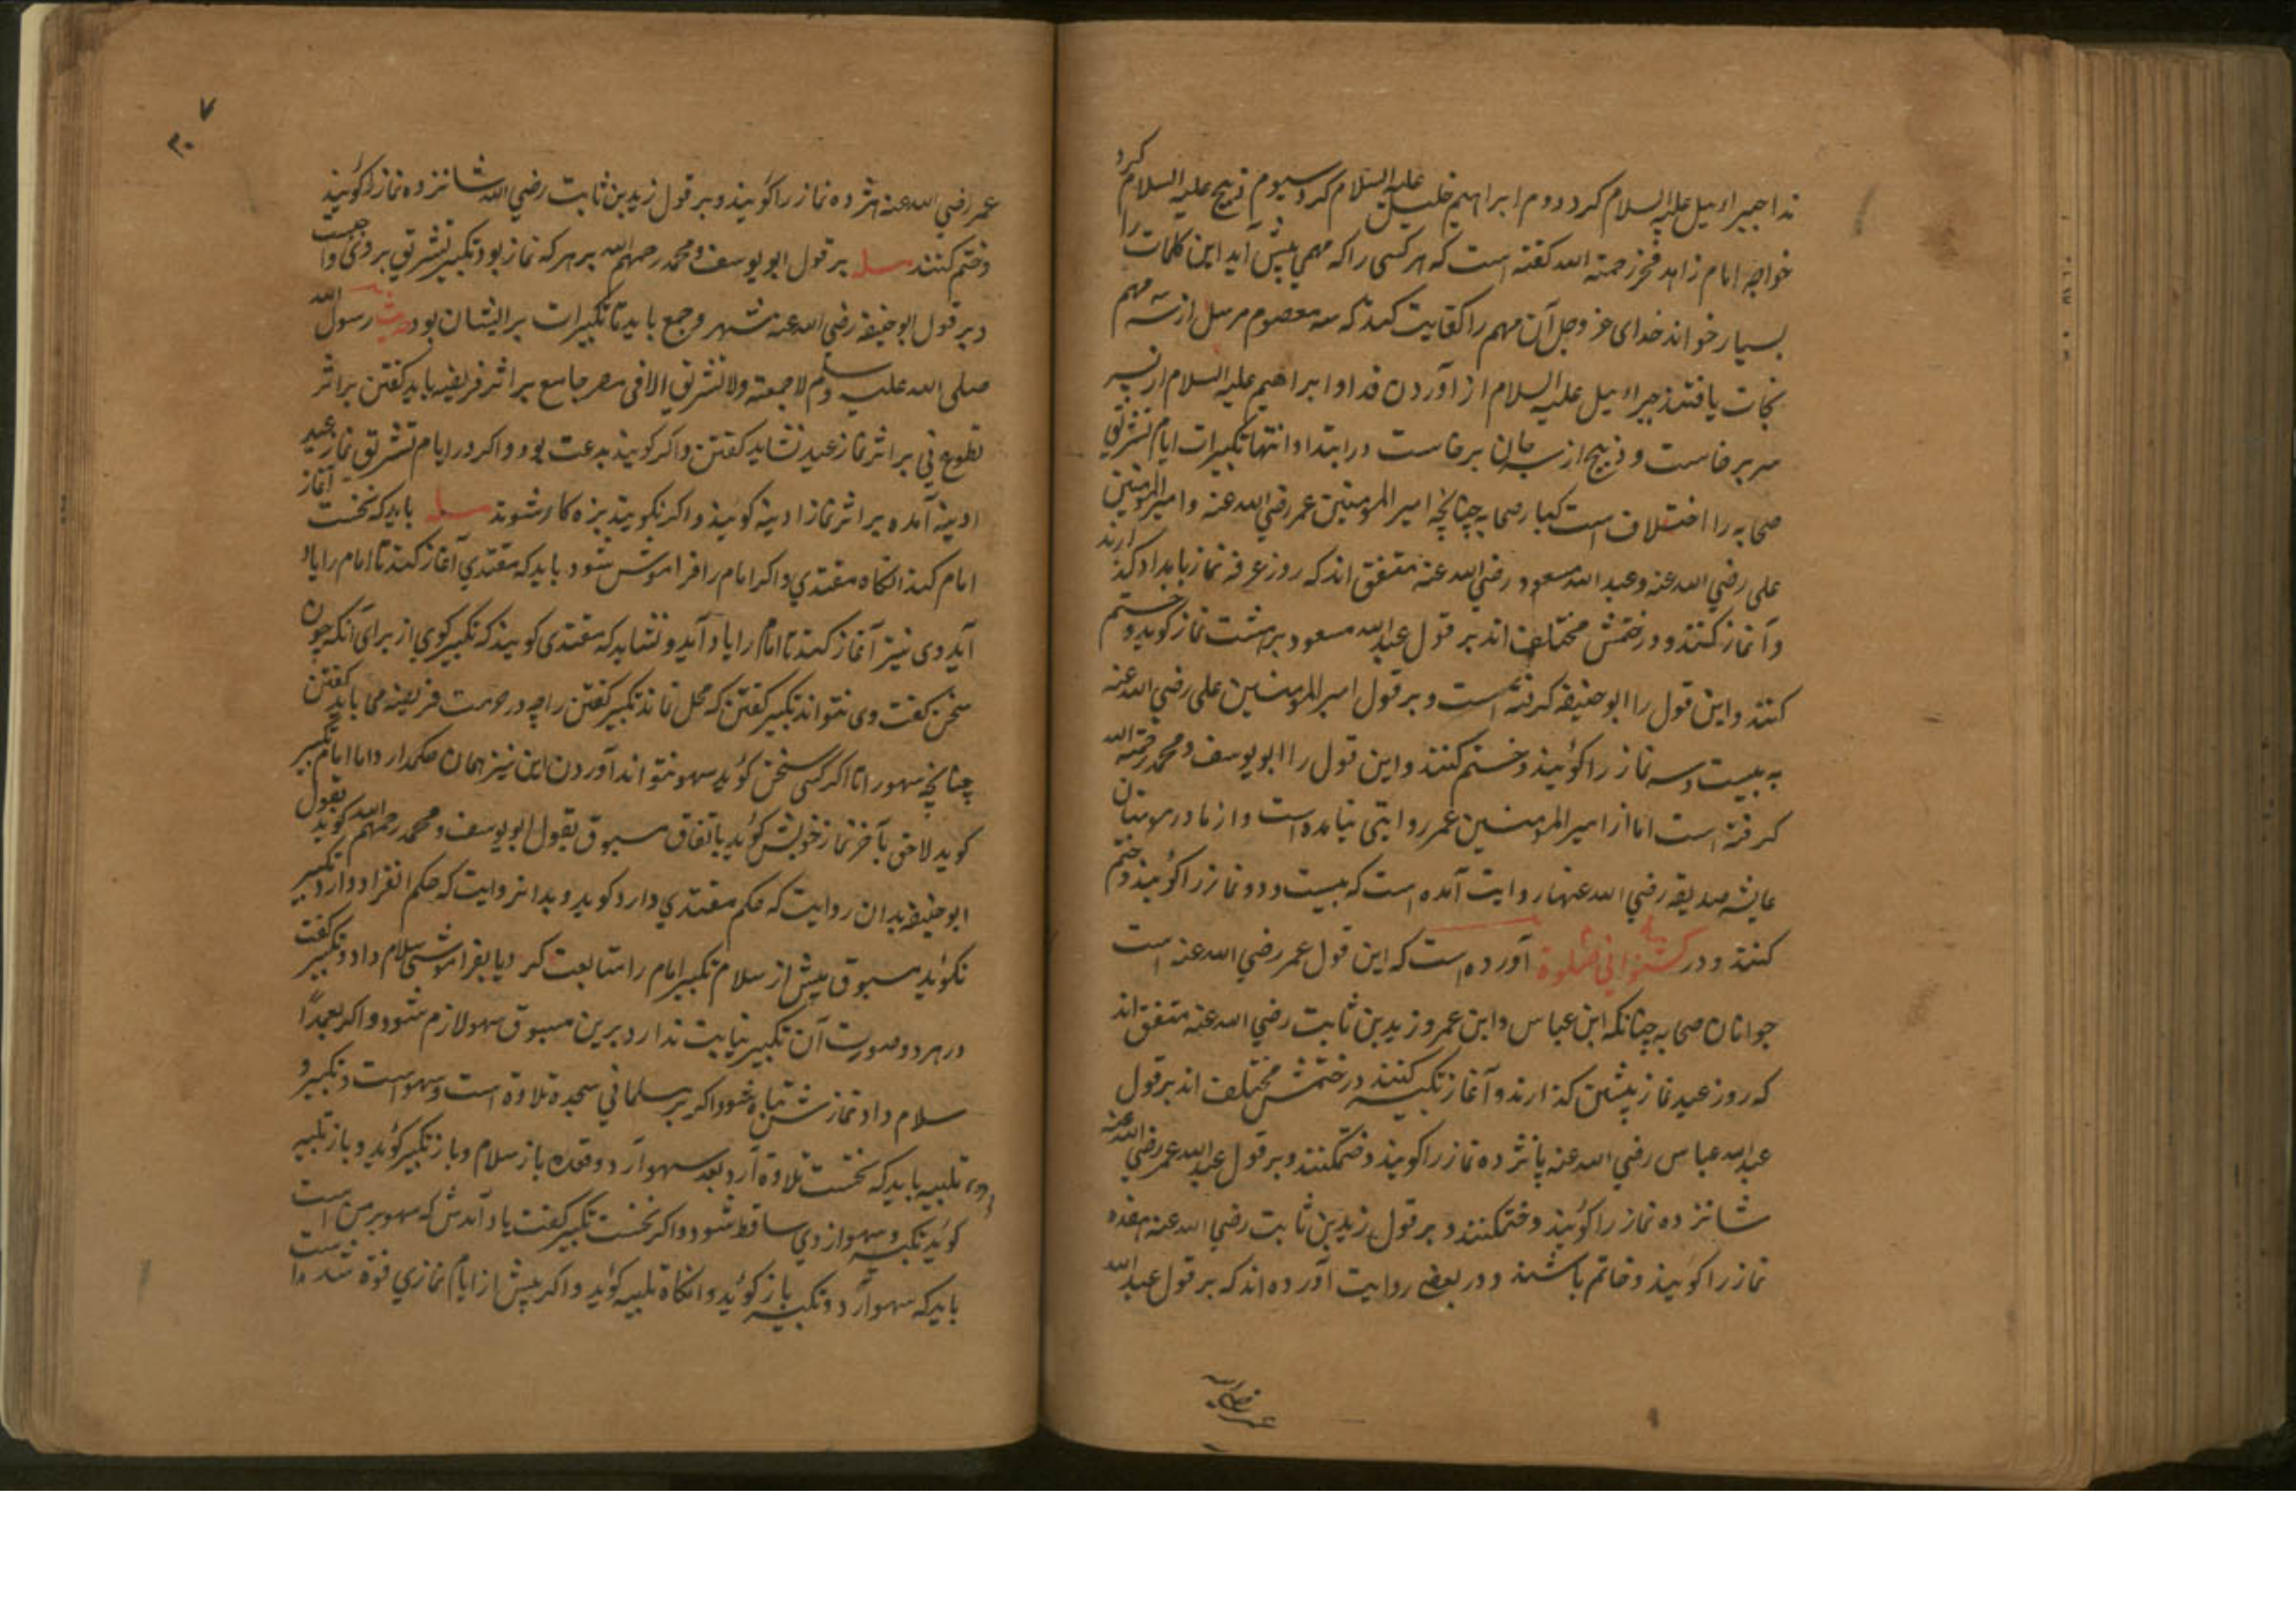 ندا جبراءیل علیه السلام کرد دوم ابراهیم خلیل علیه السلام کرد سیوم ذبیح علیه السلام کرد
خواجه امام زاهد فخر رحمته الله گفته است که هر کسی را که مهمی پیش آید این کلمات را
بسیار خواند خدای عز و جل آن مهم را کفایت کند که سه معصوم مرسل از سه مهم
نجات یافتند جبراءیل علیه السلام از آوردن فدا و ابراهیم علیه السلام از
سر برخاست و ذبیح از سر جان برخاست در ابتدا و انتها تکبیرات ایام تشریق
صحابه را اختلاف است کبار صحابه چنانچه امیر المومنین عمر رضی الله عنه و امیر المومنین
علی رضی الله عنه و عبد الله مسعود رضی الله عنه متفق اند که روز عرفه نماز بامداد گذارند
و آغاز کنند و در ختمش مختلف اند بر قول عبد الله مسعود بر هشت نماز گوید و ختم
کنند و این قول را ابو حنیفه گرفته است و بر قول امیر المومنین علی رضی الله عنه
به بیست و سه نماز را گویند و ختم کنند و این قول را ابو یوسف و محمد رحمته الله
گرفته است اما از امیر المومنین عمر روایتی نیامده است و از مادر مومنان
عایشه صدیقه رضی الله عنها روایت آمده است که بیست و دو نماز را گویند و ختم
کنند و در آورده است که این قول عمر رضی الله عنه است
جوانان صحابه چنانکه ابن عباس و ابن عمر و زید بن ثابت رضی الله عنه متفق اند
که روز عید نماز پیشین گذارند و آغاز تکبیر کنند در ختمش مختلف اند بر قول
عبد الله عباس رضی الله عنه پانزده نماز را گویند و ختم کنند و بر قول عبد الله عمر رضی الله عنه
شانزده نماز را گویند و ختم کنند و بر قول زید بن ثابت رضی الله عنه هفده
نماز را گویند و خاتم باشند و در بعضی روایت آورده اند که بر قول عبد الله
۳۰۷
عمر رضی الله عنه هژده نماز را گویند و بر قول زید بن ثابت رضی الله شانزده نماز را گویند
و ختم کنند مسله بر قول ابو یوسف و محمد رحمهم الله بر هر که نماز بود تکبیر تشریق بر وی واجبست
و بر قول ابو حنیفه رضی الله عنه شهر و جمع باید تا تکبیرات بر ایشان بود حدیث رسول الله
صلی الله علیه وسلم لا جمعته ولا تشریق الا فی مصر جامع بر اثر فریضه باید گفتن بر اثر
تطوع نی بر اثر نماز عید نشاید گفتن و اگر گویند بدعت بود و اگر در ایام تشریق نماز عید
ادینه آمده بر اثر نماز ادینه گویند و اگر نگویند بزه کار شوند مسله باید که نخست آغاز
امام کند انگاه مقتدی و اگر امام را فراموش شود باید که مقتدی آغاز کند تا امام را یاد
آید وی نیز آغاز کند تا امام را یاد آید و نشاید که مقتدی گویند که تکبیر گوی از برای آنکه چون
سخن گفت وی نتواند تکبیر گفتن که محل نماند تکبیر گفتن را چه در حرمت فریضه می باید گفتن
چنانچه سهو را تا اگر کسی سخن گوید سهو نتواند آوردن این نیز همان حکم دارد اما امام تکبیر
گوید لاحق بآخر نماز خویش گوید باتفاق مسبوق بقول ابو یوسف و محمد رحمهم الله گوید بقول
ابو حنیفه بدان روایت که حکم مقتدی دارد گوید و بدان روایت که حکم انفراد دارد تکبیر
نگوید مسبوق پیش از سلام تکبیر امام را متابعت کرد یا بفراموشی سلام داد و تکبیر گفت
در هر دو صورت آن تکبیر نیابت ندارد برین مسبوق سهو لازم شود و اگر بعمدا
سلام داد نمازش تباه شود اگر بر مسلمانی سجده تلاوة است و سهو است و تکبیر و
تلبیه باید که نخست تلاوة آرد بعد سهو آرد و قعده باز سلام و باز تکبیر گوید و باز تلبیه
گوید تکبیر و سهو از وی ساقط شود و اگر نخست تکبیر گفت یاد آمدش که سهو بر من است
باید که سهو آرد و تکبیر باز گوید و انگاه تلبیه گوید و اگر پیش از ایام نمازی فوة شده است